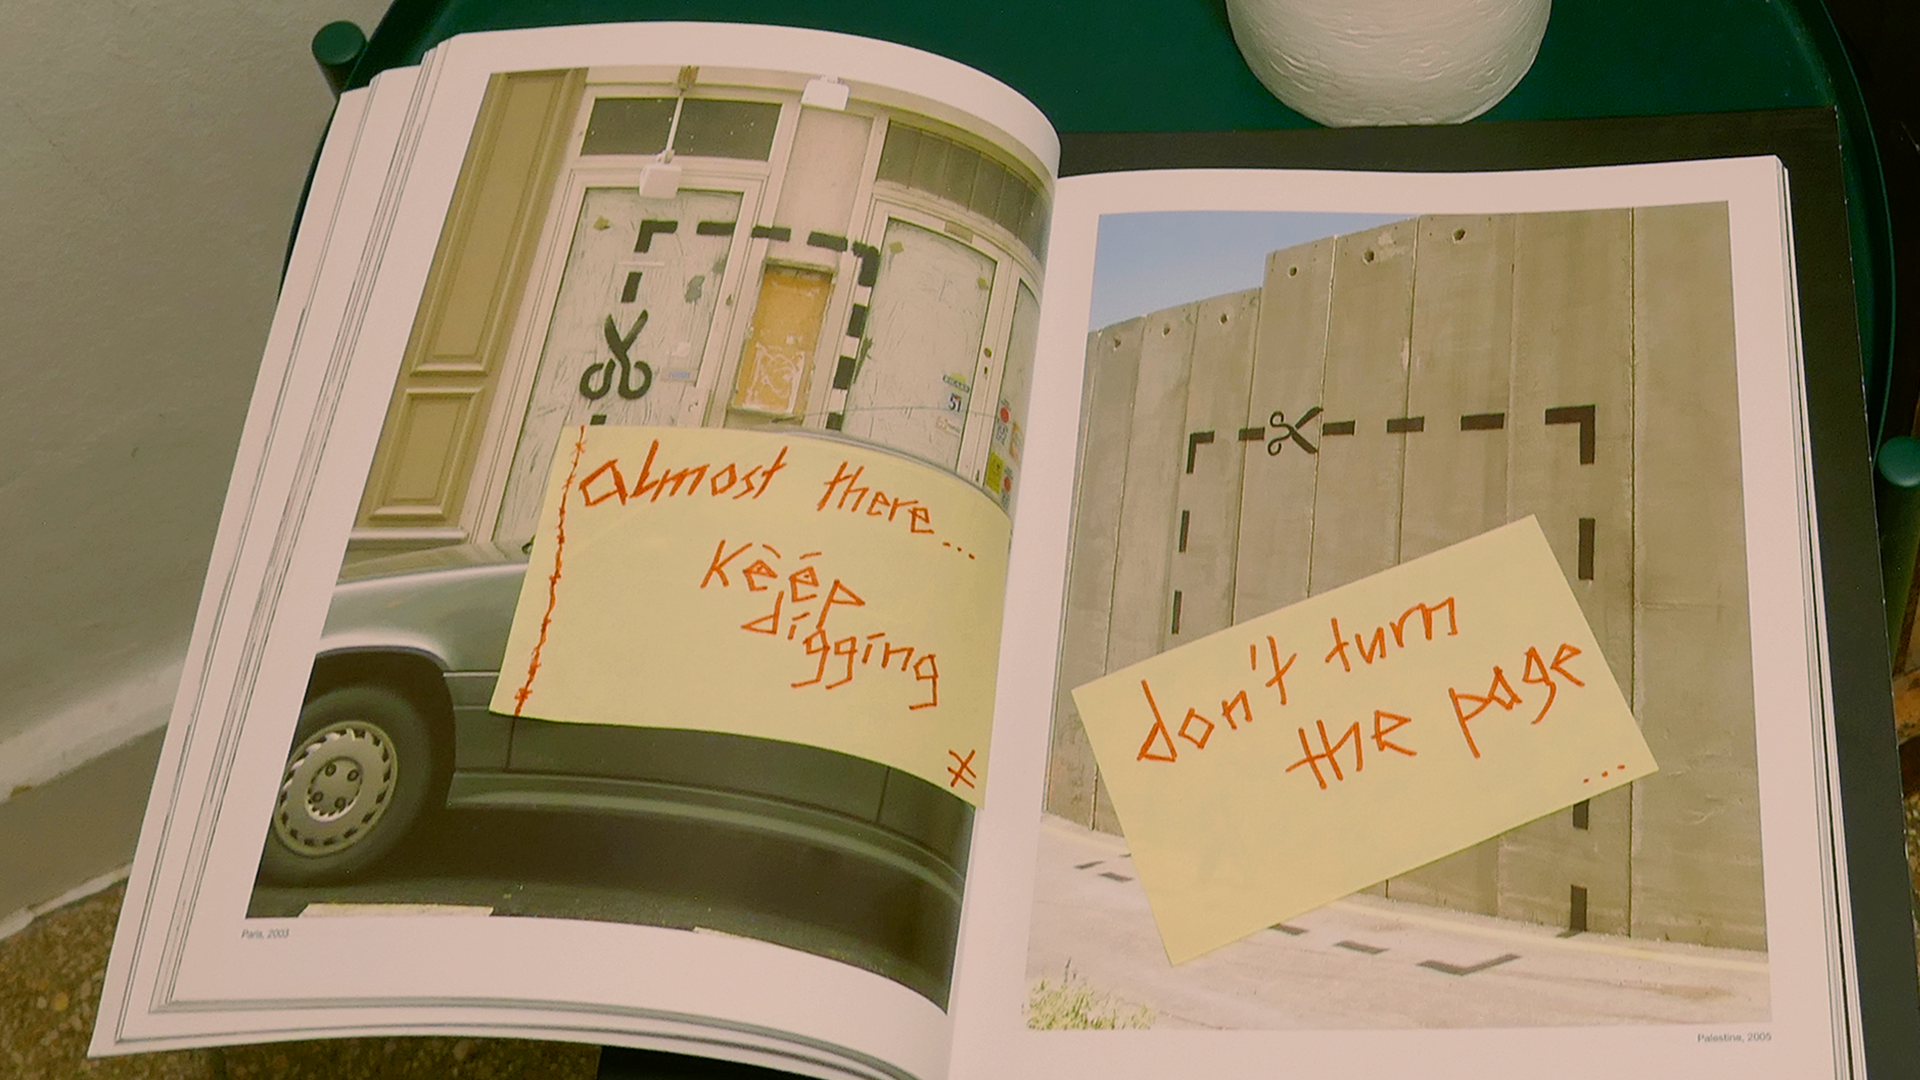 almost there...
Kèép
digging
51
Paris, 2003
don't turn
the page
...
Palestine, 2005